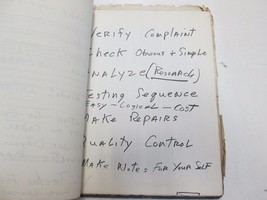 Verify Complaint
Check Obvious + Simple
Analyze (Research)
Testing Sequence
Easy - Logical - Cost
Make Repairs
Quality Control
Make Notes = For Your Self